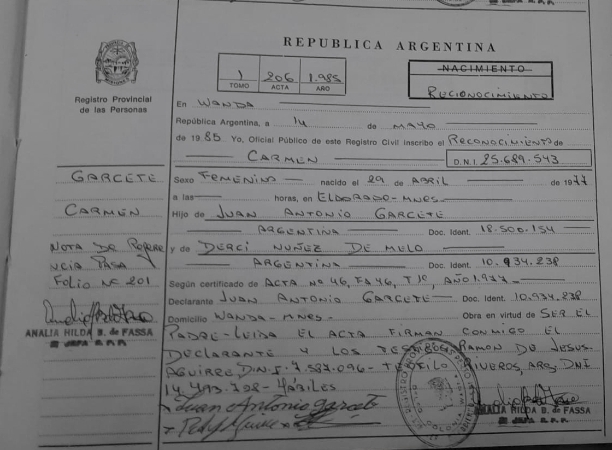 REPUBLICA ARGENTINA
1 206 1.985
TOMO ACTA AÑO
NACIMIENTO
RECONOCIMIENTO
Registro Provincial
de las Personas
En WANDA
República Argentina, a 14 de MAYO
de 1985 Yo, Oficial Público de este Registro Civil inscribo el RECONOCIMIENTO de
CARMEN D.N.I 25.689.543
Sexo FEMENINO nacido el 29 de ABRIL de 1977
a las horas, en ELDORADO-MNES-
Hijo de JUAN ANTONIO GARCETE
ARGENTINA Doc. Ident. 18.500.154
y de DERCI NUÑEZ DE MELO
ARGENTINA Doc. Ident. 10.934.238
Según certificado de ACTA Nº 46, Fº 46, Tº 1º, AÑO 1.977-
Declarante JUAN ANTONIO GARCETE Doc. Ident. 10.934.238
Domicilio WANDA-MNES- Obra en virtud de SER EL
PADRE-LEIDA EL ACTA FIRMAN CONMIGO EL
DECLARANTE Y LOS TESTIGOS RAMON DE JESUS-
AGUIRRE D.N.I. 7.587.096- RIVEROS, ARG. DNI
14.493.728- HABILES
Juan Antonio garcete
GARCETE
CARMEN
NOTA DE REFERE
NCIA PASA
FOLIO Nº 201
ANALIA HILDA B. de FASSA
JEFA R.P.P.
ANALIA HILDA B. de FASSA
JEFA R.P.P.